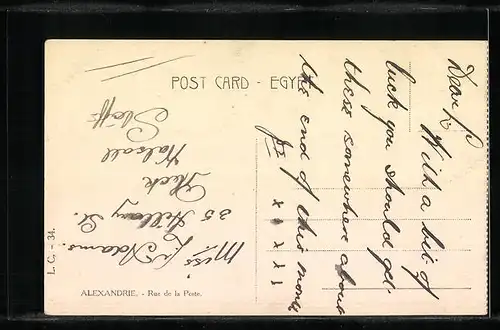 POST CARD - EGYPT
Dear P
With a bit of
luck you should get
these somewhere about
the end of this month
x x x x
Miss P. Adams.
35
St.
Walsall
Staffs
L. C. - 34.
ALEXANDRIE. - Rue de la Poste.